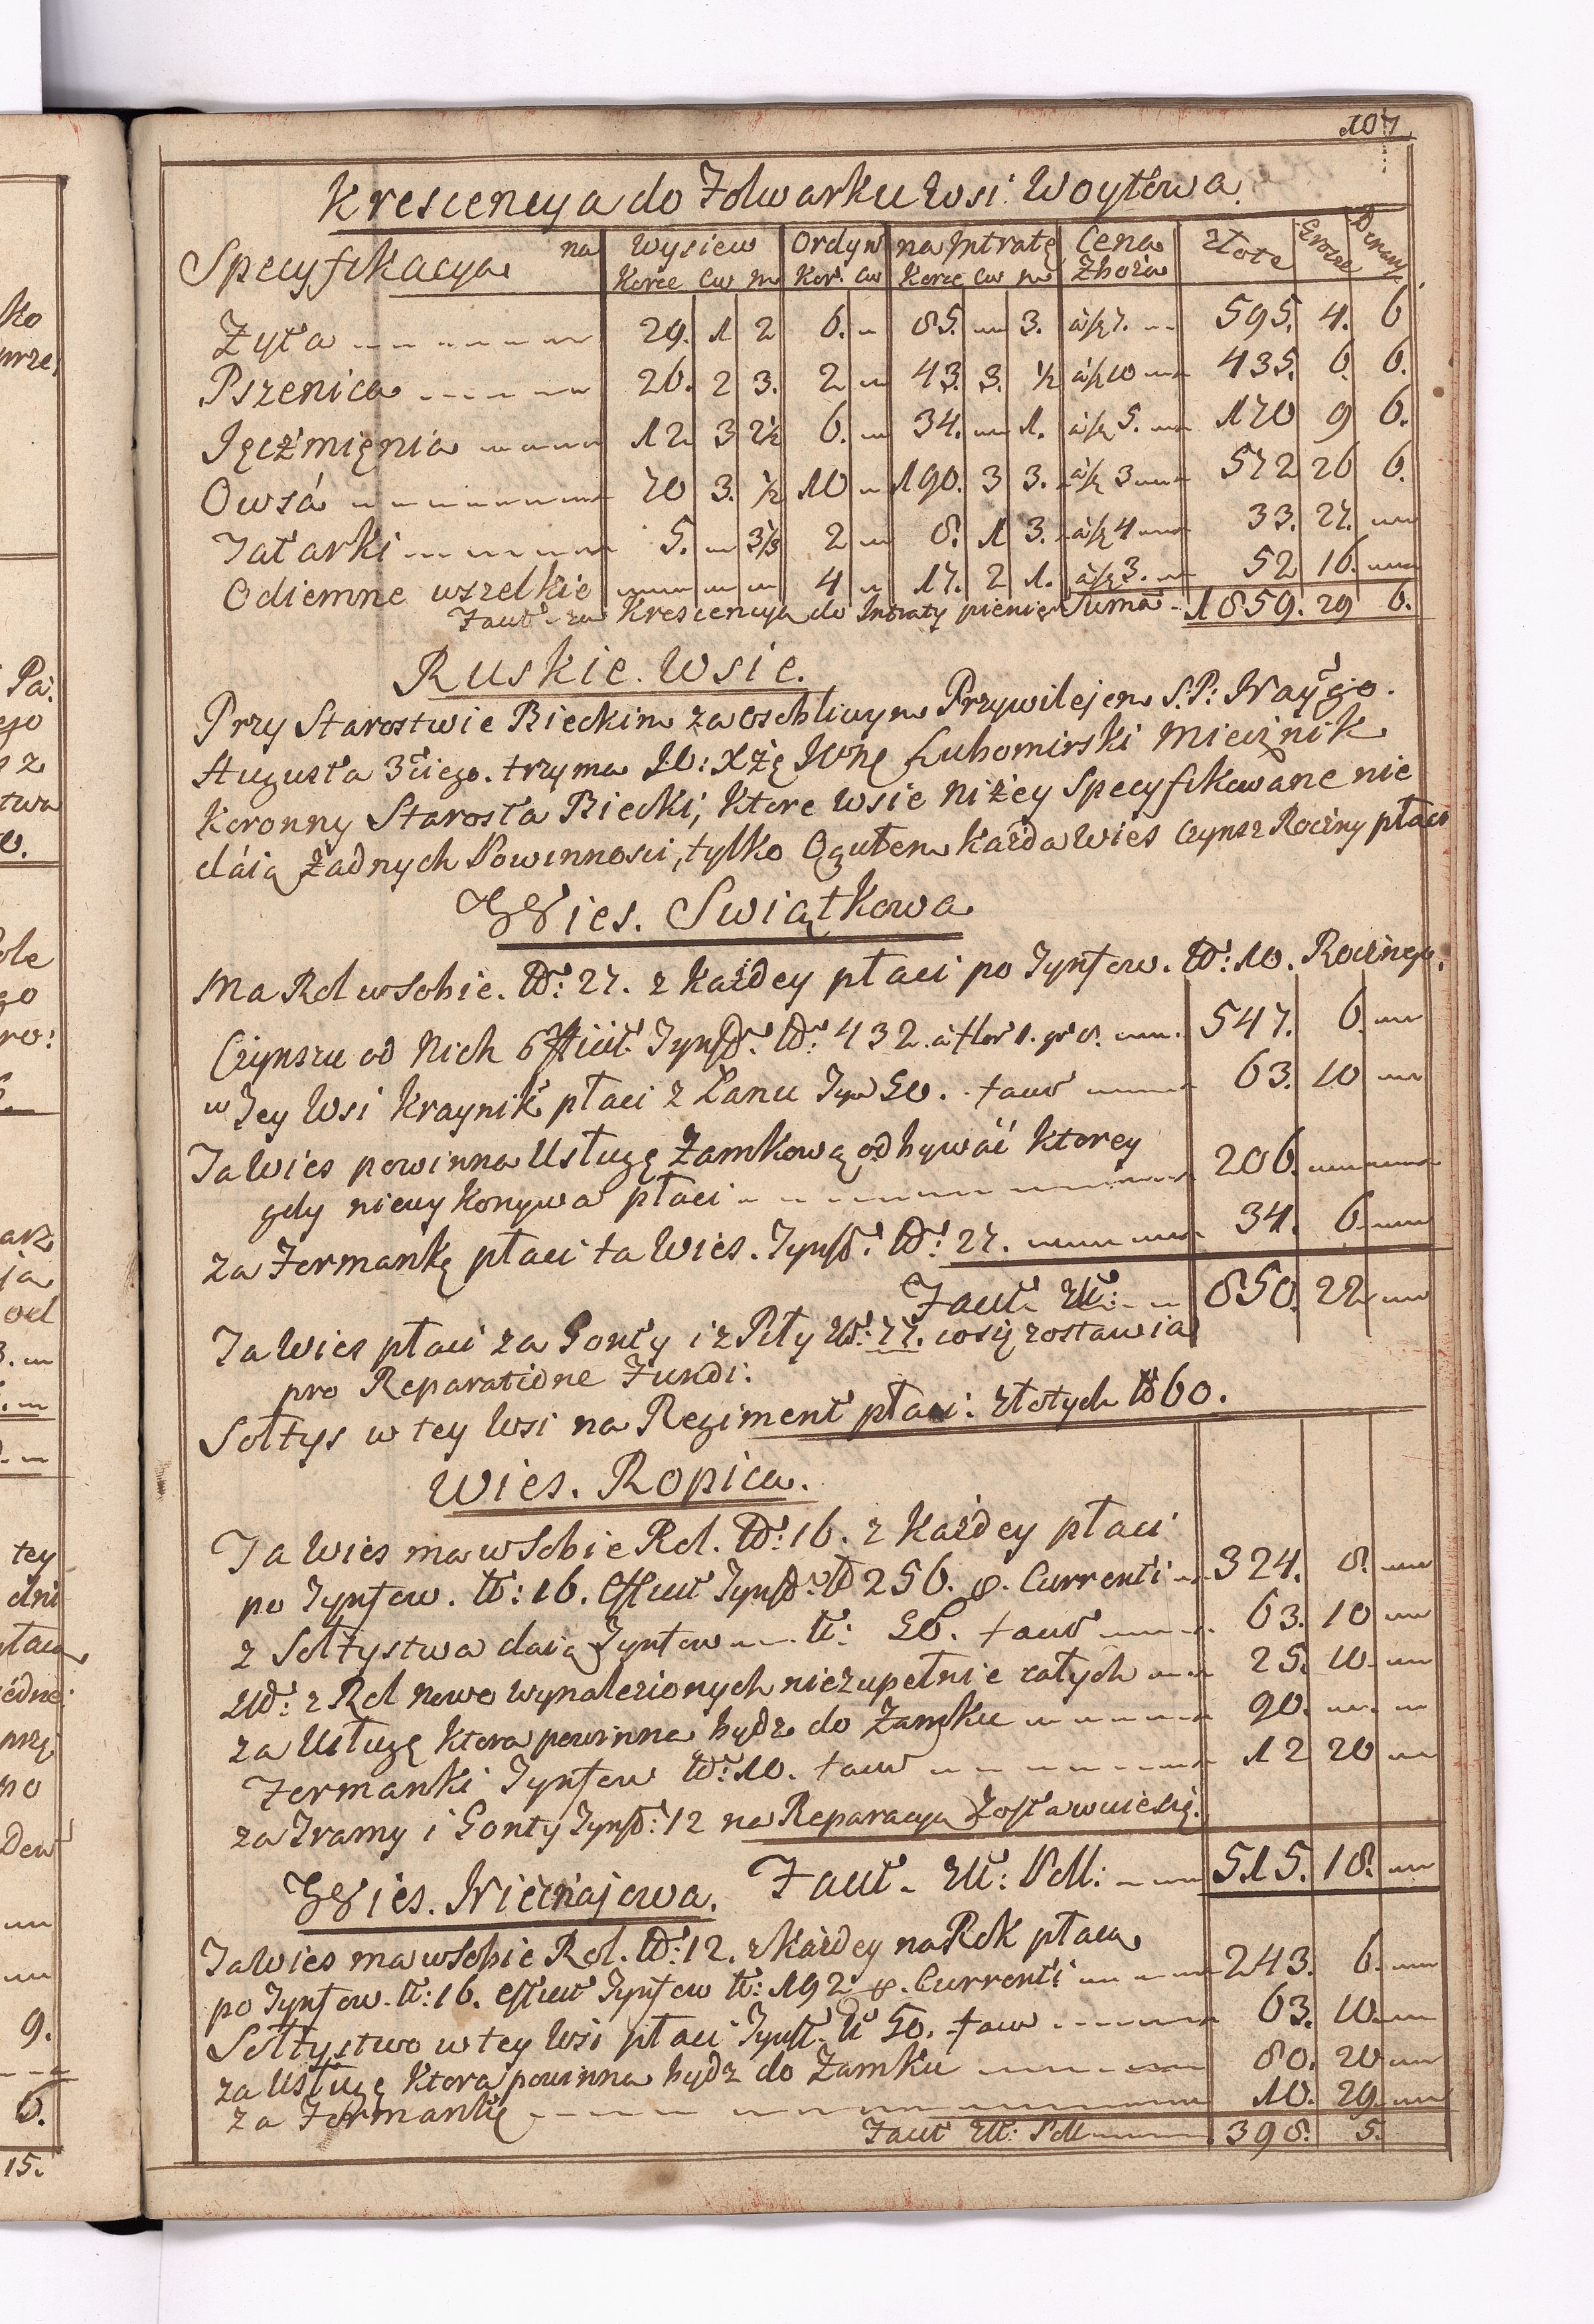 107
Krescencya do Folwarku Wsi Woytowa.
Specyfikacya na Wysiew Ordyn na Intratę Cena Złote Grosze Denary
Korce Cw m Kor. Cw Korce Cw m Zboża
Zyta 29. 1 2 6. 85. 3. à fl 7. 595. 4. 6
Pszenica 26. 2 3. 2 43. 3. ½ à fl 10 435. 6. 6.
Jęczmięnia 12 3 2½ 6. 34. 1. à fl 5. 170 9 6.
Owsá 70 3. ½ 10 190. 3 3. à fl 3 572 26 6.
Tatarki 5. 3⅓ 2 8. 1 3. à fl 4 33. 27.
Odiemne wszelkie 4 17. 2 1. à fl 3. 52 16.
Facit za Krescencya do Intraty pienięż Suma 1859. 29 6.
Ruskie Wsie.
Przy Starostwie Bieckim za osobliwym Przywilejem S.P: Naygo.
Augusta 3ciego. trzyma JO: Xżę Jmć Lubomirski Miecznik
Koronny Starosta Biecki, Ktore Wsie niżey Specyfikowane nie
dáią Żadnych Powinnosci, tylko Ogułem Każda Wies Czynsz Roczny płaci
Wies. Swiątkowa
Ma Rol w Sobie. No: 27. z Każdey płaci po Tynfow. No: 10. Rocznego
Czynszu od Nich Efficit Tynf. No: 432. à flor 1. gr 8. 547. 6.
w Tey Wsi Kraynik płaci z Łanu Tyn 50. facit 63. 10
Ta Wies powinna Usługę Zamkową odbywáć Ktorey
gdy niewykonywa płaci 206.
za Formankę płaci ta Wies. Tynf. No: 27. 34. 6.
Facit 850. 22
Ta Wies płaci za Gonty i z Piły No: 77. co się zostawia
pro Reparatione Fundi.
Sołtys w tey Wsi na Regiment płaci: złotych No 60.
Wies. Ropica.
Ta Wies ma w Sobie Rol. No: 16. z Każdey płaci
po Tynfow. No: 16. Efficit Tynf. No 256. Currenti 324. 8.
z Sołtystwa daią Tynfow No: 50. facit 63. 10
z Rol nowo wynalezionych niezupełnie całych 25. 10.
za Usługę Ktora powinna bydz do Zamku 90.
Formanki Tynfow No: 10. facit 12 20
za Tramy i Gonty Tynf: 12 na Reparacyą Zostawuie się.
Facit 515. 18.
Wies. Nieznajowa.
Ta Wies ma w Sobie Rol. No: 12. z Każdey na Rok płaca
po Tynfow. No: 16. Efficit Tynfow No: 192. Currenti 243. 6.
Sołtystwo w tey Wsi płaci Tynf. No 50. facit 63. 10.
za Usługę Ktora powinna bydz do Zamku 80. 20
za Formankę 10. 29.
Facit 398. 5.